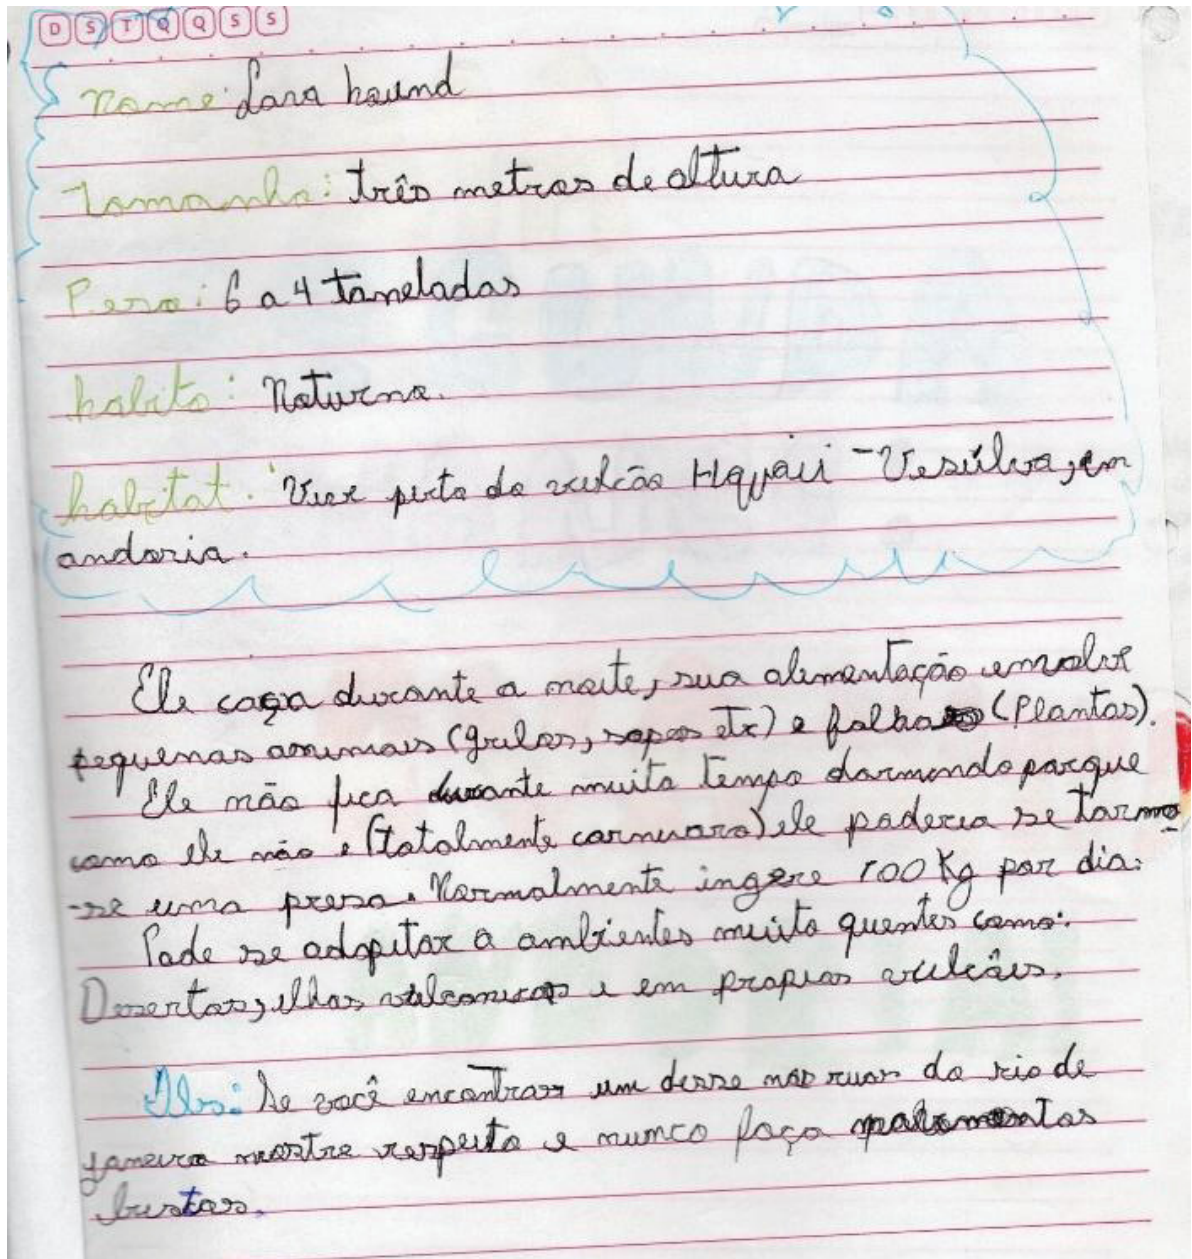 D S T Q Q S S
Nome: Lava hound
Tamanho: três metros de altura
Peso: 6 a 4 toneladas
habito: Noturno.
habitat: Vive perto do vulcão Havaii - Vesúlvio, em
andoria.
Ele caça durante a noite, sua alimentação envolve
pequenos animais (grilos, sapos etc) e folha (Plantas).
Ele não fica durante muito tempo dormindo porque
como ele não e (totalmente carnivoro) ele poderia se torna
-se uma presa. Normalmente ingere 100 Kg por dia.
Pode se adapitar a ambientes muito quentes como:
Desertos, ilhas vulcanicas e em propios vulcões.
Obs: Se você encontrar um desse nas ruas do rio de
janeiro mostre respeito e nunca faça